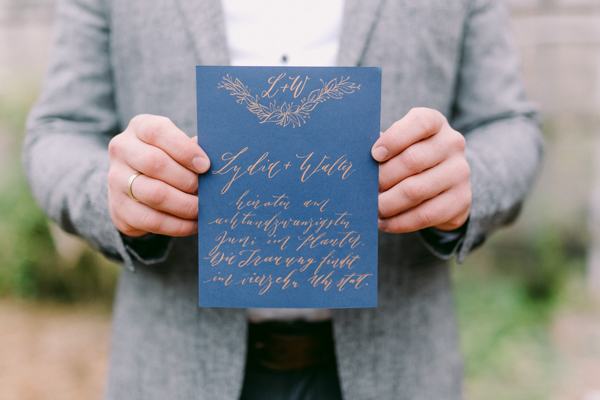 L+W
Lydia + Walter
heiraten am
achtundzwanzigsten
Juni im Planter.
Die Trauung findet
um vierzehn Uhr statt.